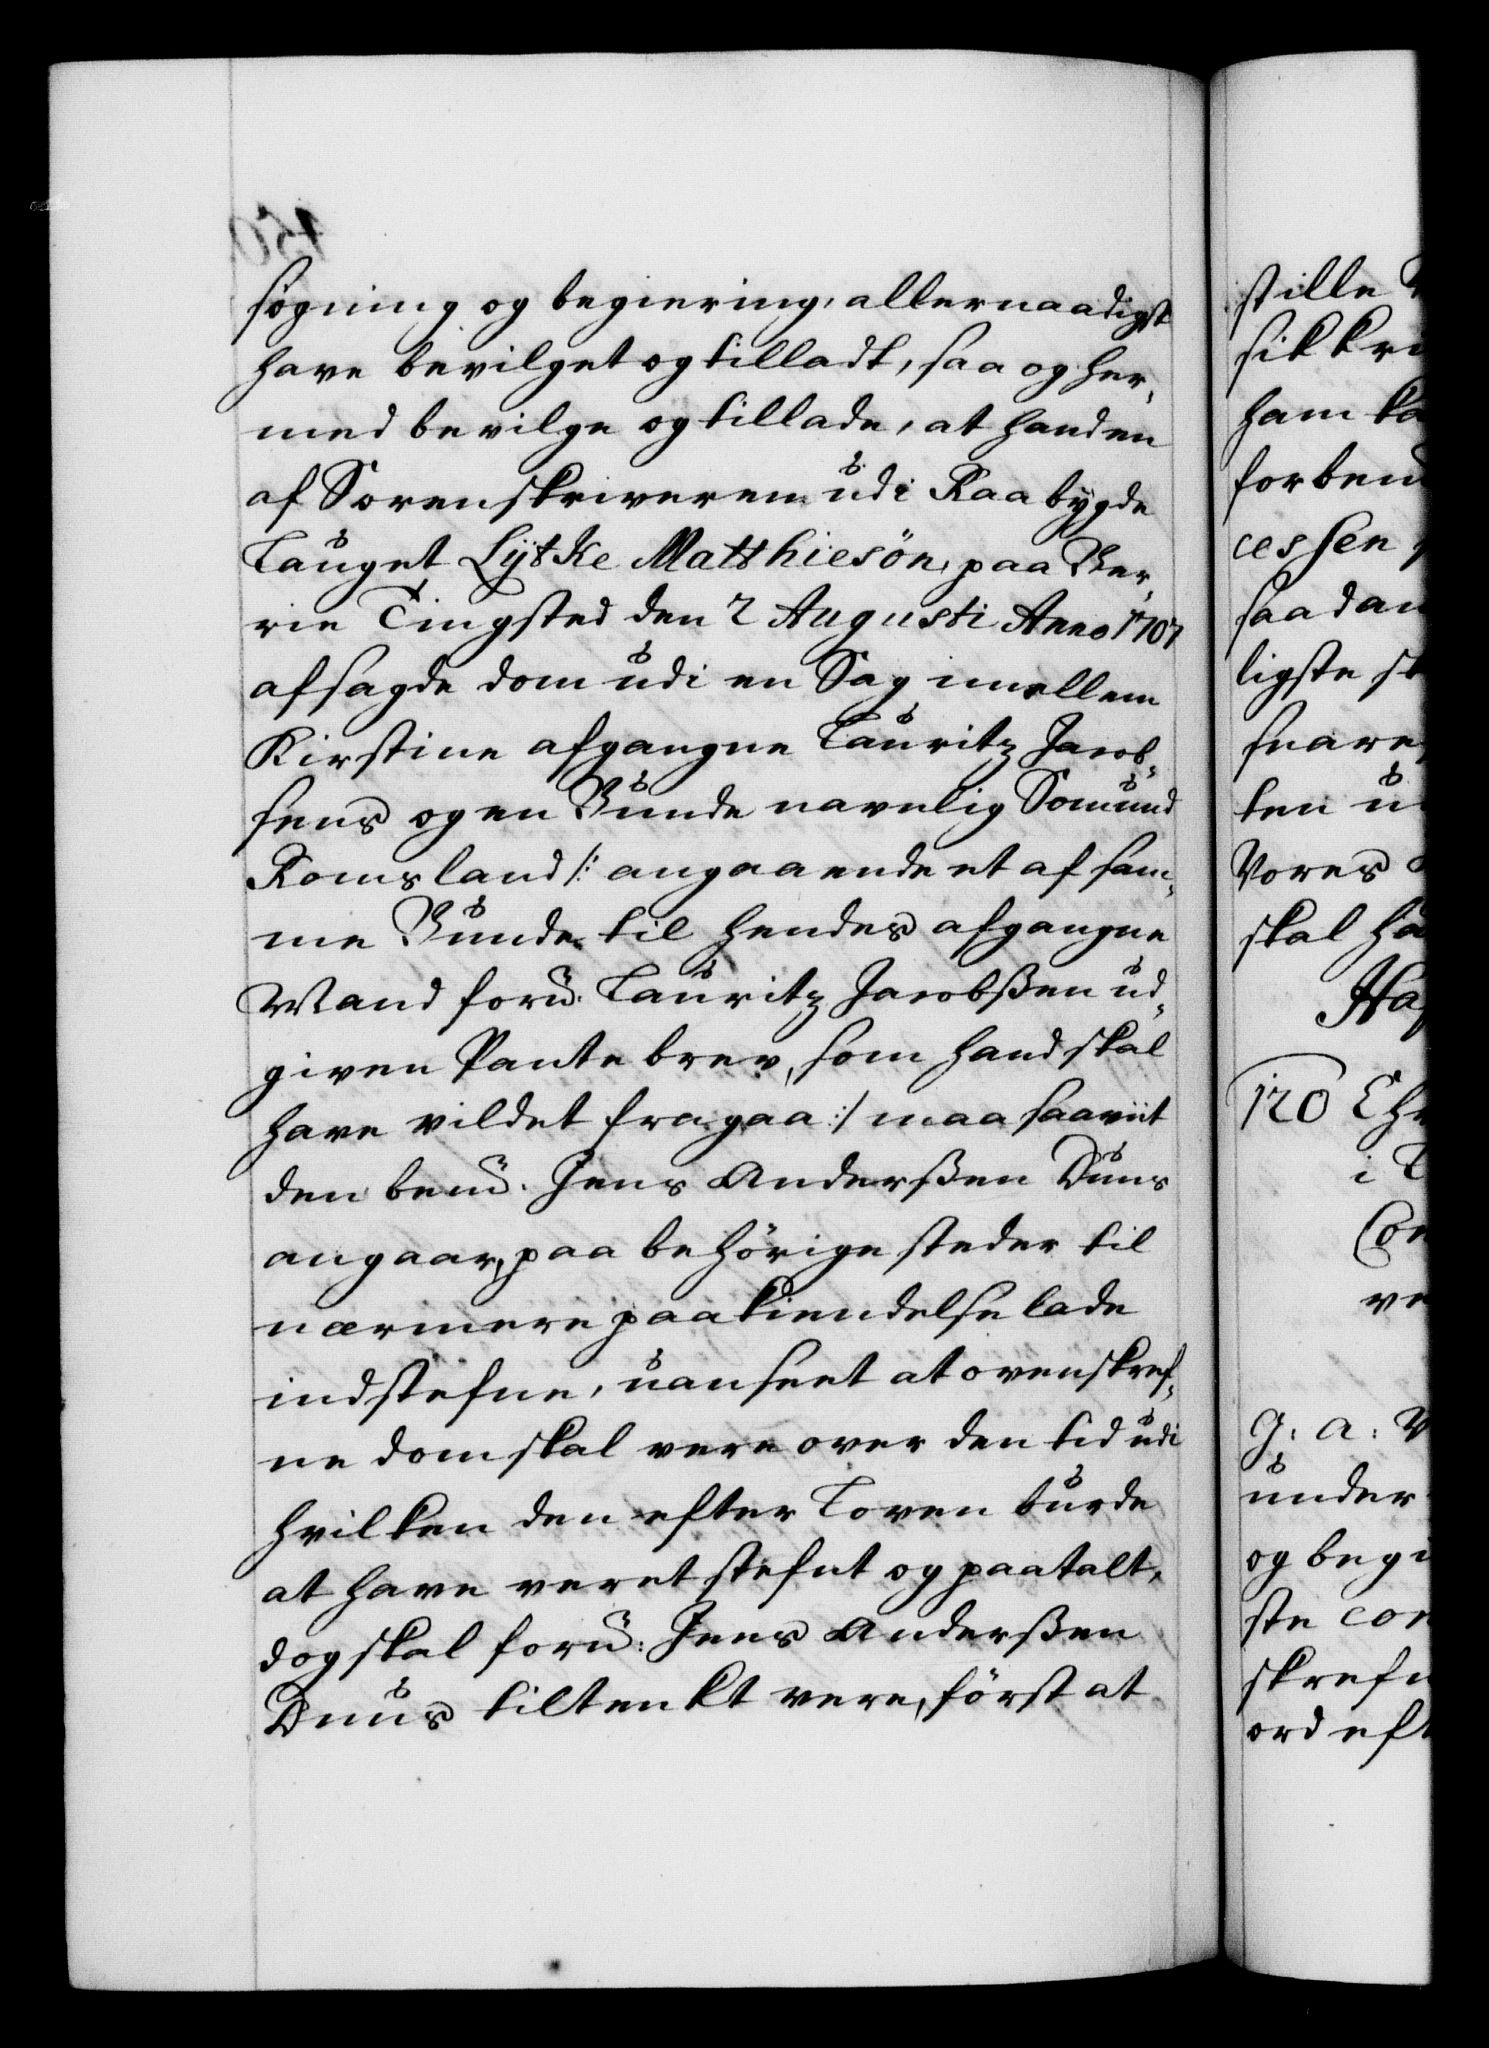 søgning og begiering, allernaadigst
have bevilget og tilladt, saa og her-
med bevilge og tillade, at hand en
af Sorenskriveren udi Raabygde
Lauget Lÿtke Matthiesön, paa Ber-
rie Tingsted den 2 Augusti Anno 1707
afsagde dom udi en Sag imellem
Kirstine afgangne Lauritz Jacob-
sens og en Bunde navnlig Somund
Romsland /: angaaende et af sam-
me Bunde til hendes afgangne
Mand fornᵗ: Lauritz Jacobßen ud-
given Pante brev, som hand skal
have vildet fragaa :/ maa saaviit
den bemᵗ. Jens Anderßen Duus
angaar, paa behörige steder til
nærmere paakiendelse lade
indstefne, uanseet at ovenskref-
ne dom skal vere over den tid udi
hvilken den efter Loven burde
at have veret stefnt og paatalt,
dog skal fornᵗ: Jens Anderßen
Duus tiltenkt vere, först at
stille
sikkri
ham
forben
cessen
saadan
ligste
svare
ten
Vores
skal
120 Chr
i
ve
G: A: V
under
og begi
ste con
skrefn
ord eft